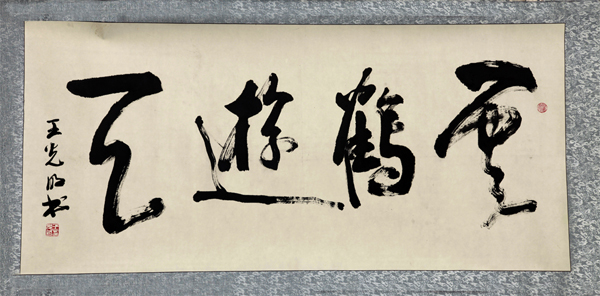 雲鶴遊天
王光明书